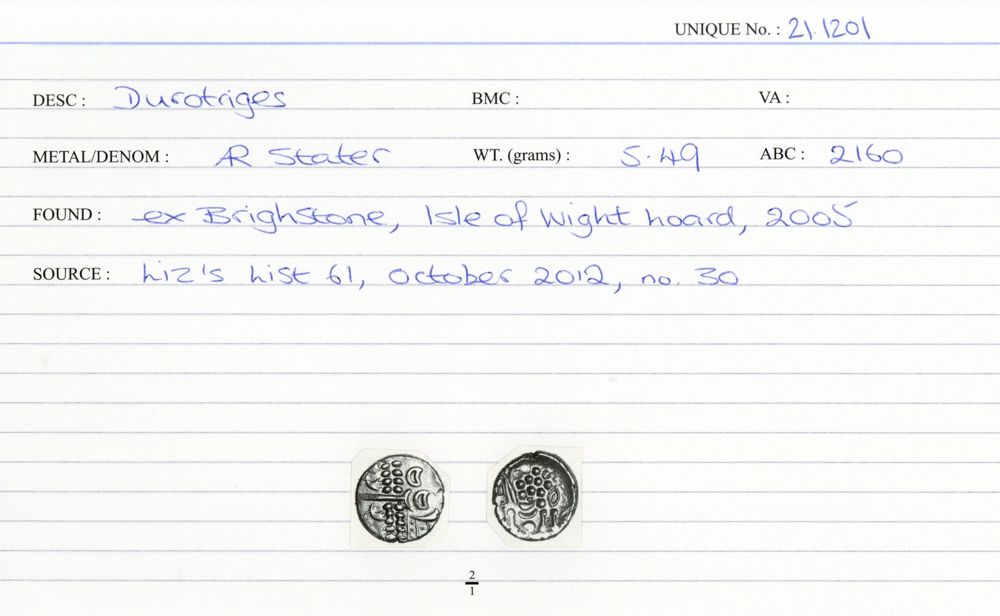 UNIQUE No. : 21.1201
DESC : Durotriges BMC : VA :
METAL/DENOM : AR Stater WT. (grams) : 5.49 ABC : 2160
FOUND : ex Brighstone, Isle of Wight hoard, 2005
SOURCE : Liz's List 61, October 2012, no. 30
2
1